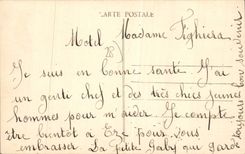 CARTE POSTALE
Motel Madame Fighiera
28
Je suis en bonne santé J'ai
un gentil chef et des très chics jeunes
hommes pour m'aider. Je compte
être bientôt à Eze pour vous
embrasser La petite Gaby qui garde
toujours bon souvenir